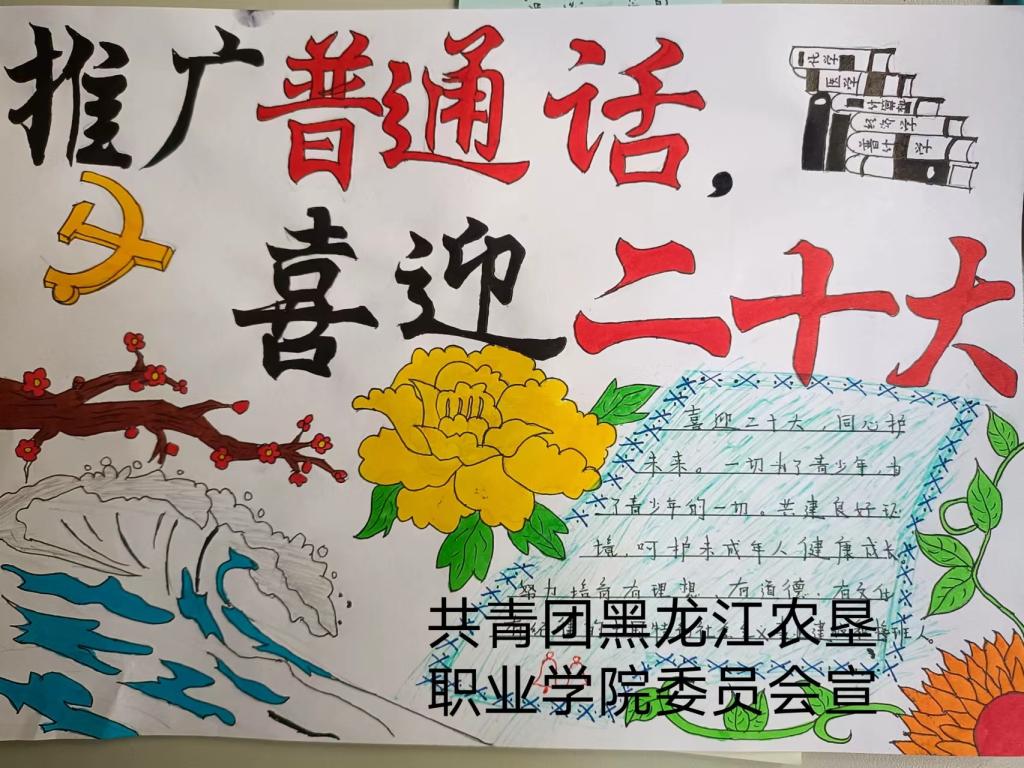 推广普通话，
喜迎二十大
化学
医学
计算机
经济学
会计学
喜迎二十大，同心护
未来。一切为了青少年，为
了青少年的一切。共建良好环
境，呵护未成年人健康成长。
努力培育有理想、有道德、有文化
班人。
共青团黑龙江农垦
职业学院委员会宣